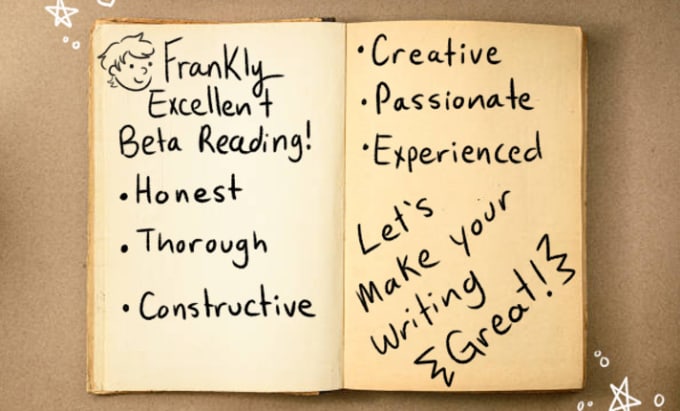 Frankly
Excellent
Beta Reading!
• Honest
• Thorough
• Constructive
• Creative
• Passionate
• Experienced
Let's
make your
writing
Great!